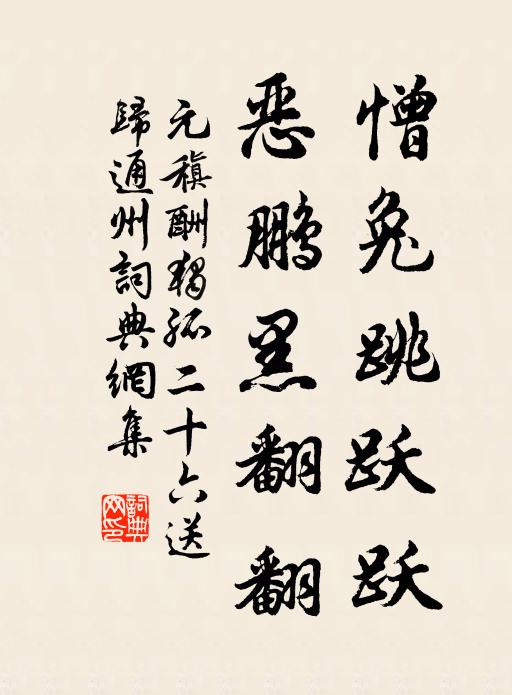 憎兔跳跃跃
恶鹏黑翻翻
元稹酬獨孤二十六送
歸通州詞典網集
詞典網印